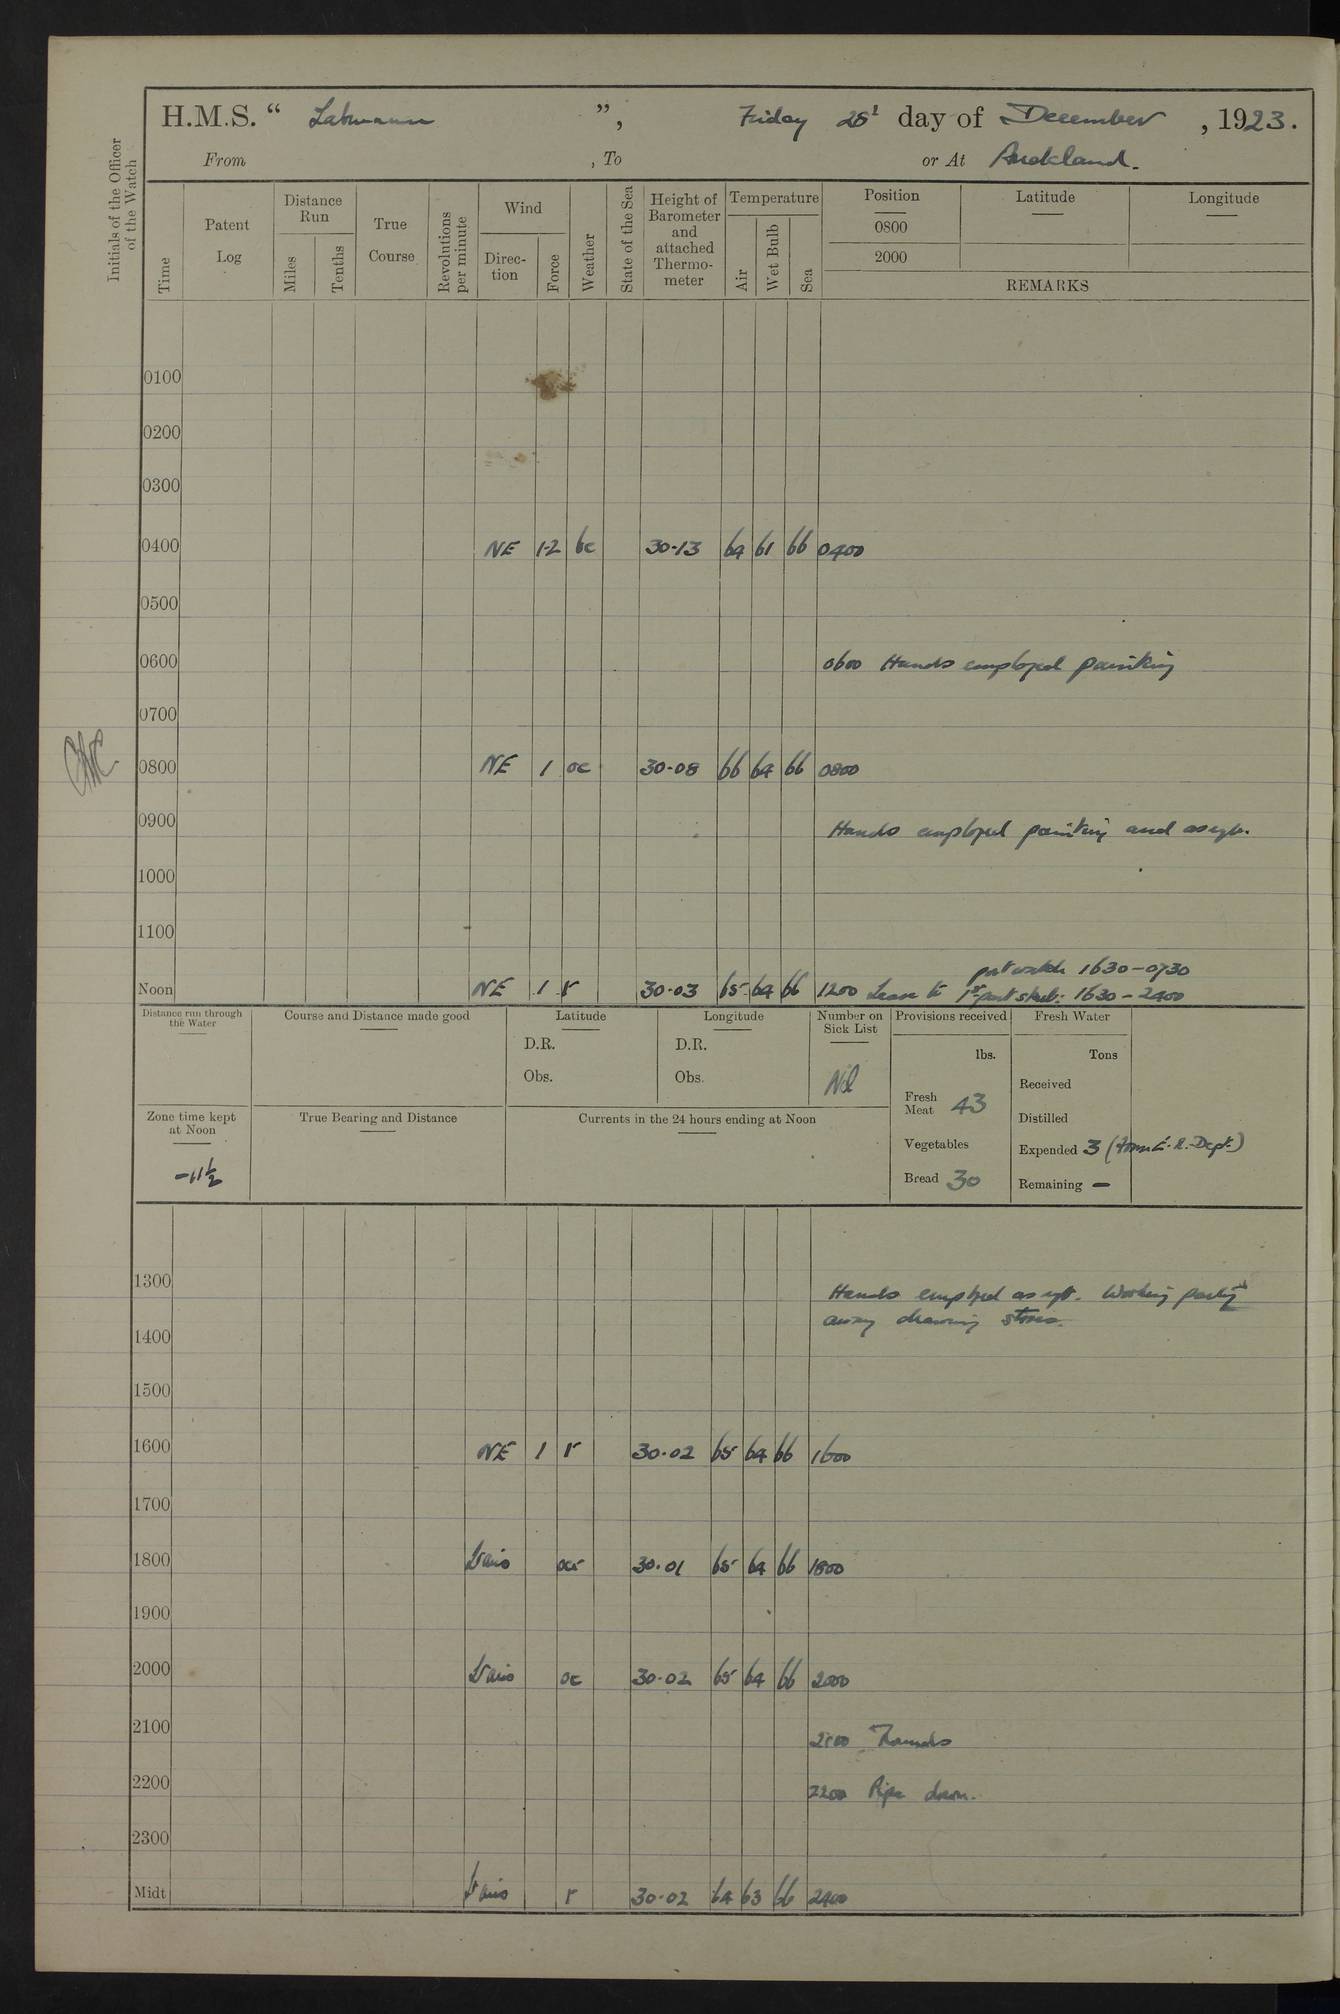 H.M.S. " Laburnum ", Friday 28th day of December, 1923.
From , To or At Auckland.
Initials of the Officer of the Watch
Time
Patent Log
Distance Run
Miles
Tenths
True Course
Revolutions per minute
Wind
Direction
Force
Weather
State of the Sea
Height of Barometer and attached Thermometer
Temperature
Air
Wet Bulb
Sea
Position
0800
2000
Latitude
Longitude
REMARKS
0100
0200
0300
0400 NE 1-2 bc 30·13 64 61 66 0400
0500
0600 0600 Hands employed painting
0700
0800 NE 1 oc 30·08 66 64 66 0800
0900 Hands employed painting and as reqte.
1000
1100
port watch 1630-0730
Noon NE 1 r 30·03 65 64 66 1200 Leave to 1st part stbd: 1630-2400
Distance run through the Water
Course and Distance made good
Latitude
D.R.
Obs.
Longitude
D.R.
Obs.
Number on Sick List
Nil
Provisions received
lbs.
Fresh Meat 43
Vegetables
Bread 30
Fresh Water
Tons
Received
Distilled
Expended 3 (From E.R. Dept.)
Remaining -
Zone time kept at Noon
-11½
True Bearing and Distance
Currents in the 24 hours ending at Noon
1300 Hands employed as reqt. Working party
away drawing stores.
1400
1500
1600 NE 1 r 30·02 65 64 66 1600
1700
1800 Lt airs or 30·01 65 64 66 1800
1900
2000 Lt airs oc 30·02 65 64 66 2000
2100 2100 Rounds
2200 2200 Pipe down.
2300
Midt Lt airs r 30·02 64 63 66 2400